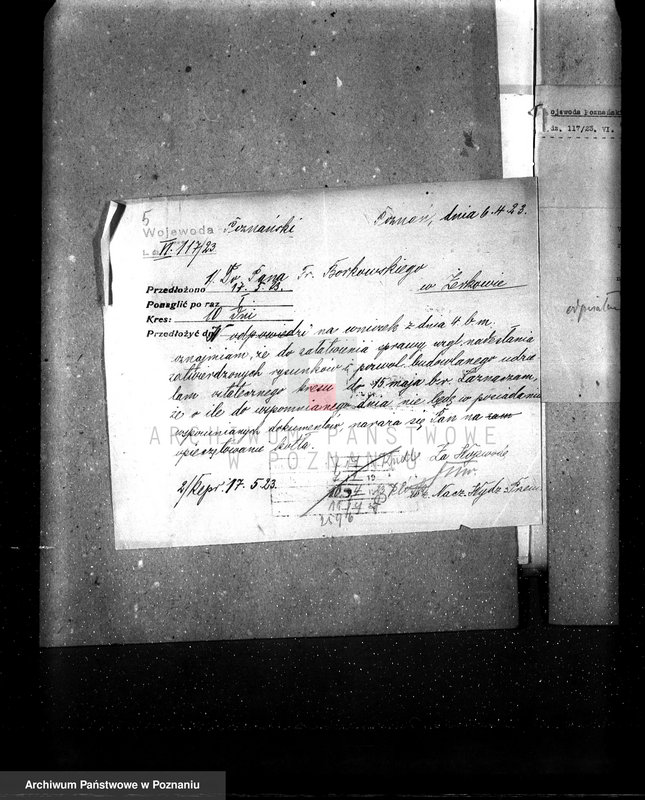 5
Wojewoda Poznański
Poznań, dnia 6.4.23.
L. dz. VI. 117/23
1/. Do Pana Fr. Borkowskiego
w Żerkowie
Przedłożono 17. 5. 23.
Ponaglić po raz I
Kres: 10 dni
Przedłożyć d.
W odpowiedzi na wniosek z dnia 4 b.m.
oznajmiam, że do załatwienia sprawy wzgl. nadesłania
zatwierdzonych rysunków i pozwol. budowlanego udzie
lam ostatecznego kresu do 15. maja br. Zaznaczam,
że o ile do wspomnianego dnia nie będę w posiadaniu
wspomnianych dokumentów, naraża się Pan na
opieczętowanie kotła.
Za Wojewodę
2/ Repr. 17. 5. 23.
Nacz. Wydz. Przem.
10 4 23
11/4
2596
ojewoda poznański
dz. 117/23. VI.
ARCHIWUM PAŃSTWOWE
W POZNANIU
Archiwum Państwowe w Poznaniu